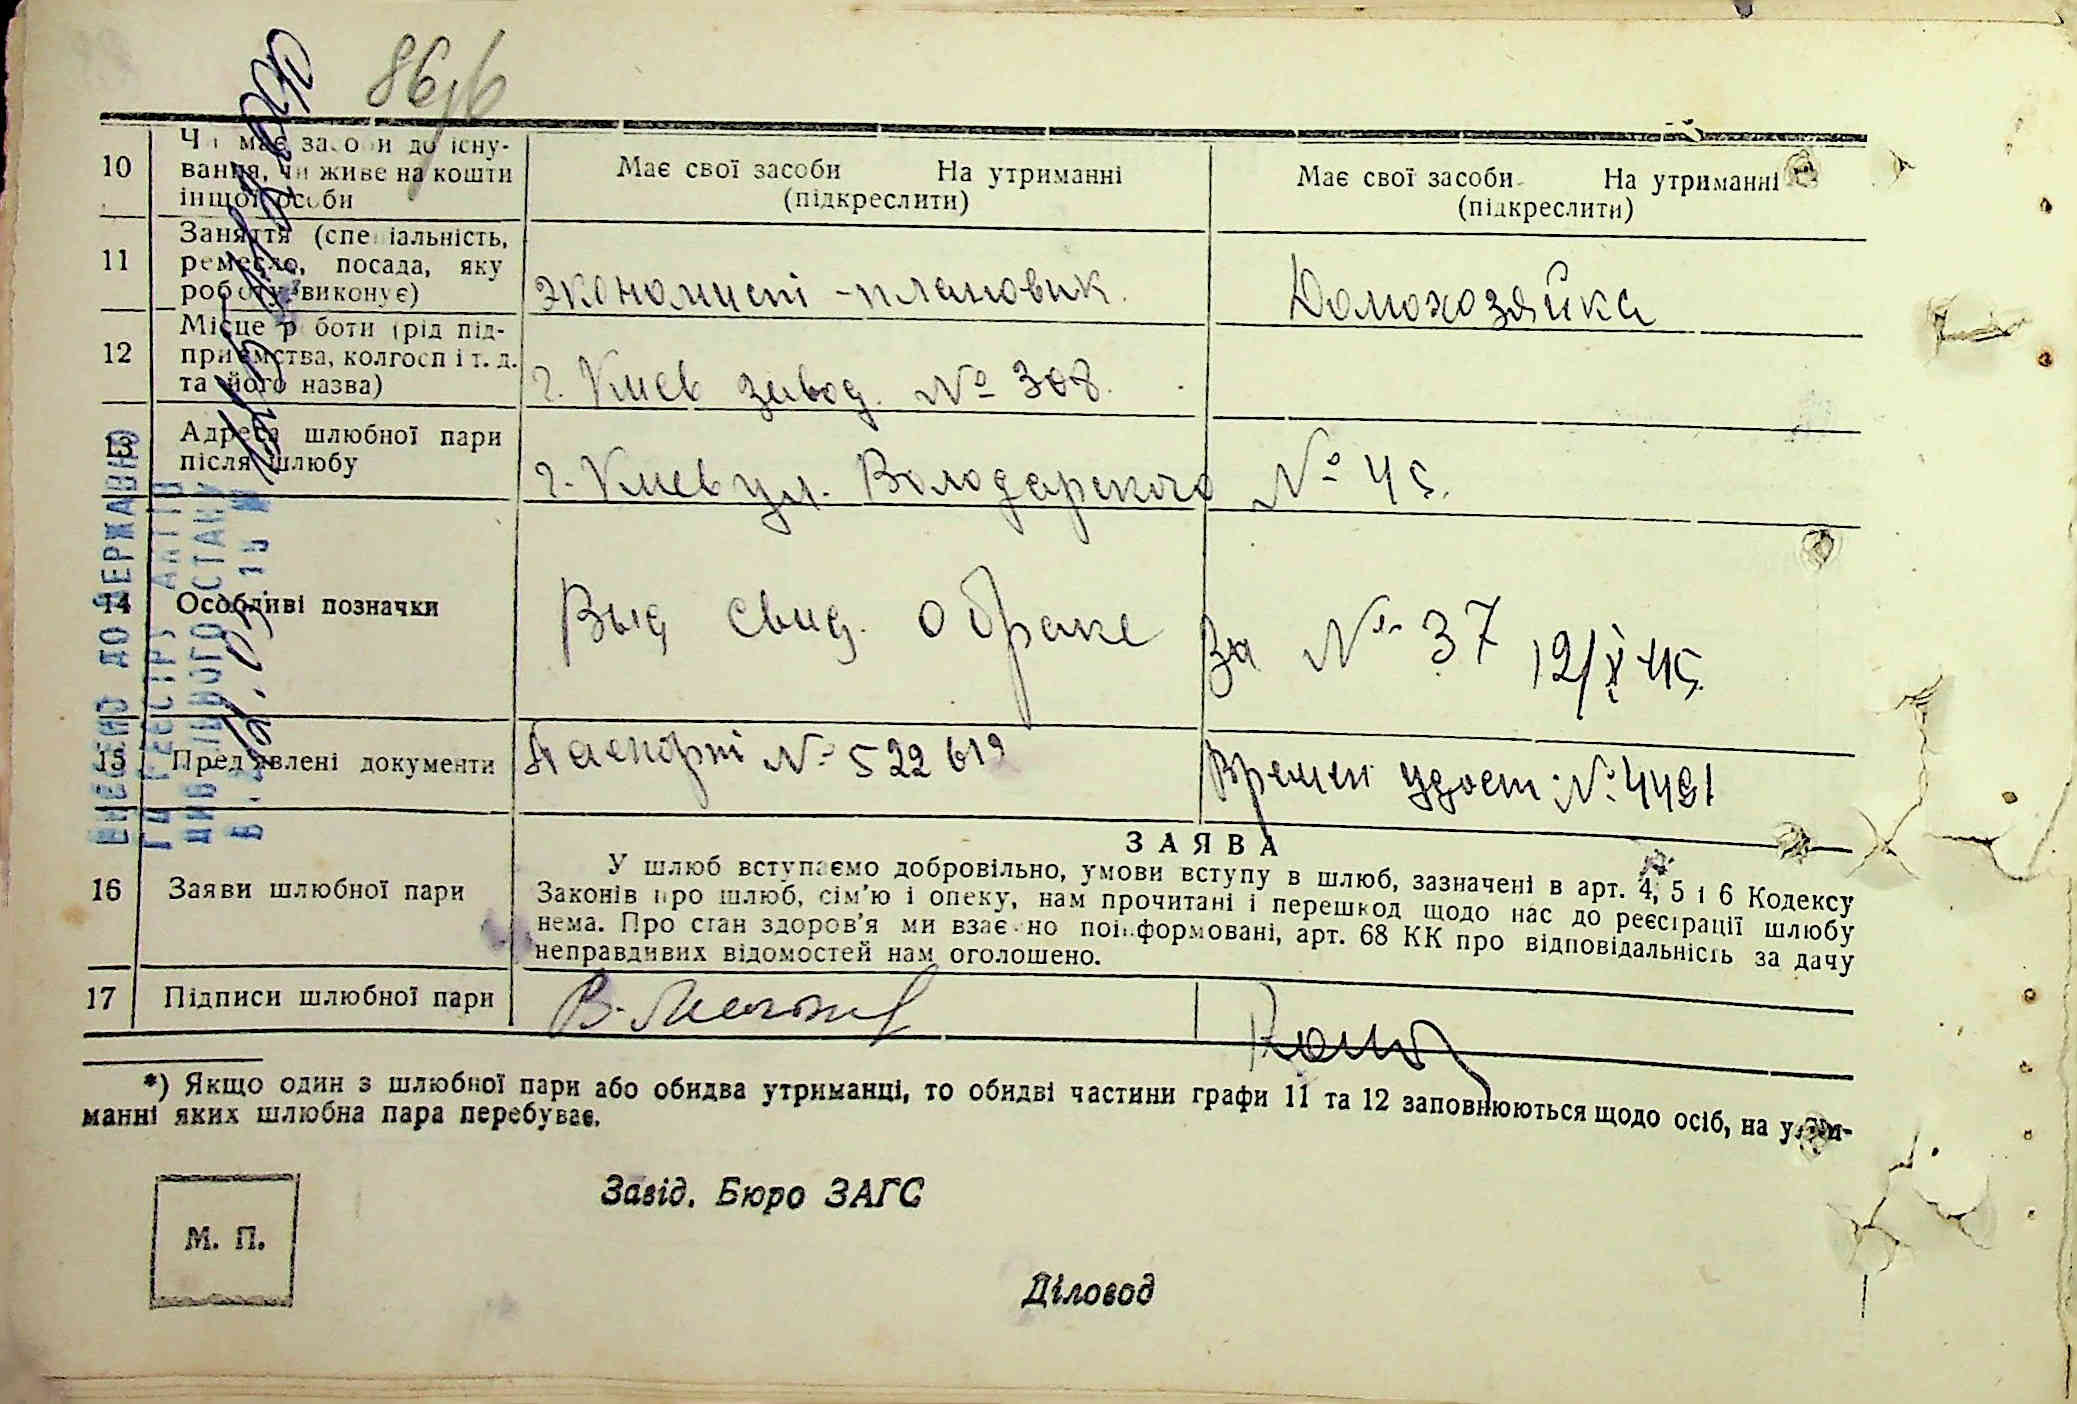 10
Чи має засоби до існу-
вання, чи живе на кошти
іншої особи
Має свої засоби На утриманні
(підкреслити)
Має свої засоби На утриманні
(підкреслити)
11
Заняття (спеціальність,
ремесло, посада, яку
роботу виконує)
экономист-плановик.
Домохозяйка
12
Місце роботи (рід під-
приємства, колгосп і т. д.
та його назва)
г. Киев завод. № 308.
13
Адреса шлюбної пари
після шлюбу
г. Киев ул. Володарского № 45.
14
Особливі позначки
Выд свид. о браке за № 37 12/X 45
15
Пред'явлені документи
Паспорт № 522619
Времен удост. № 4491
16
Заяви шлюбної пари
ЗАЯВА
У шлюб вступаємо добровільно, умови вступу в шлюб, зазначені в арт. 4, 5 і 6 Кодексу
Законів про шлюб, сім'ю і опеку, нам прочитані і перешкод щодо нас до реєстрації шлюбу
нема. Про стан здоров'я ми взаємно поінформовані, арт. 68 КК про відповідальність за дачу
неправдивих відомостей нам оголошено.
17
Підписи шлюбної пари
*) Якщо один з шлюбної пари або обидва утриманці, то обидві частини графи 11 та 12 заповнюються щодо осіб, на утри-
манні яких шлюбна пара перебуває.
Завід. Бюро ЗАГС
М. П.
Діловод
ВНЕСЕНО ДО ДЕРЖАВНО
ГО РЕЄСТРУ АКТІВ
ЦИВІЛЬНОГО СТАНУ